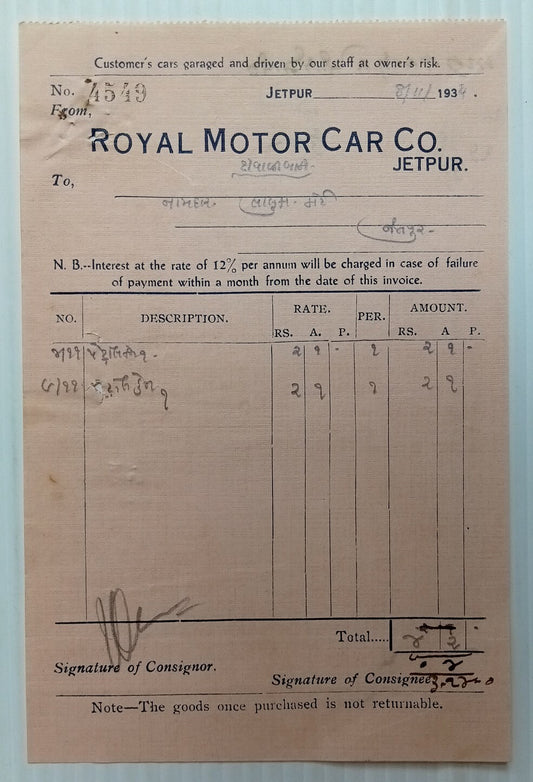 Customer's cars garaged and driven by our staff at owner's risk.
No. 4549 JETPUR 8/11/ 1934.
From,
ROYAL MOTOR CAR CO.
JETPUR.
To,
જેતપુર.
N. B.--Interest at the rate of 12% per annum will be charged in case of failure
of payment within a month from the date of this invoice.
NO. DESCRIPTION. RATE. PER. AMOUNT.
RS. A. P. RS. A P.
૨ ૧ - ૧ ૨ ૧ -
૨ ૧ ૧ ૨ ૧
Total..... ૪ ૨ -
Signature of Consignor.
Signature of Consignee
Note—The goods once purchased is not returnable.